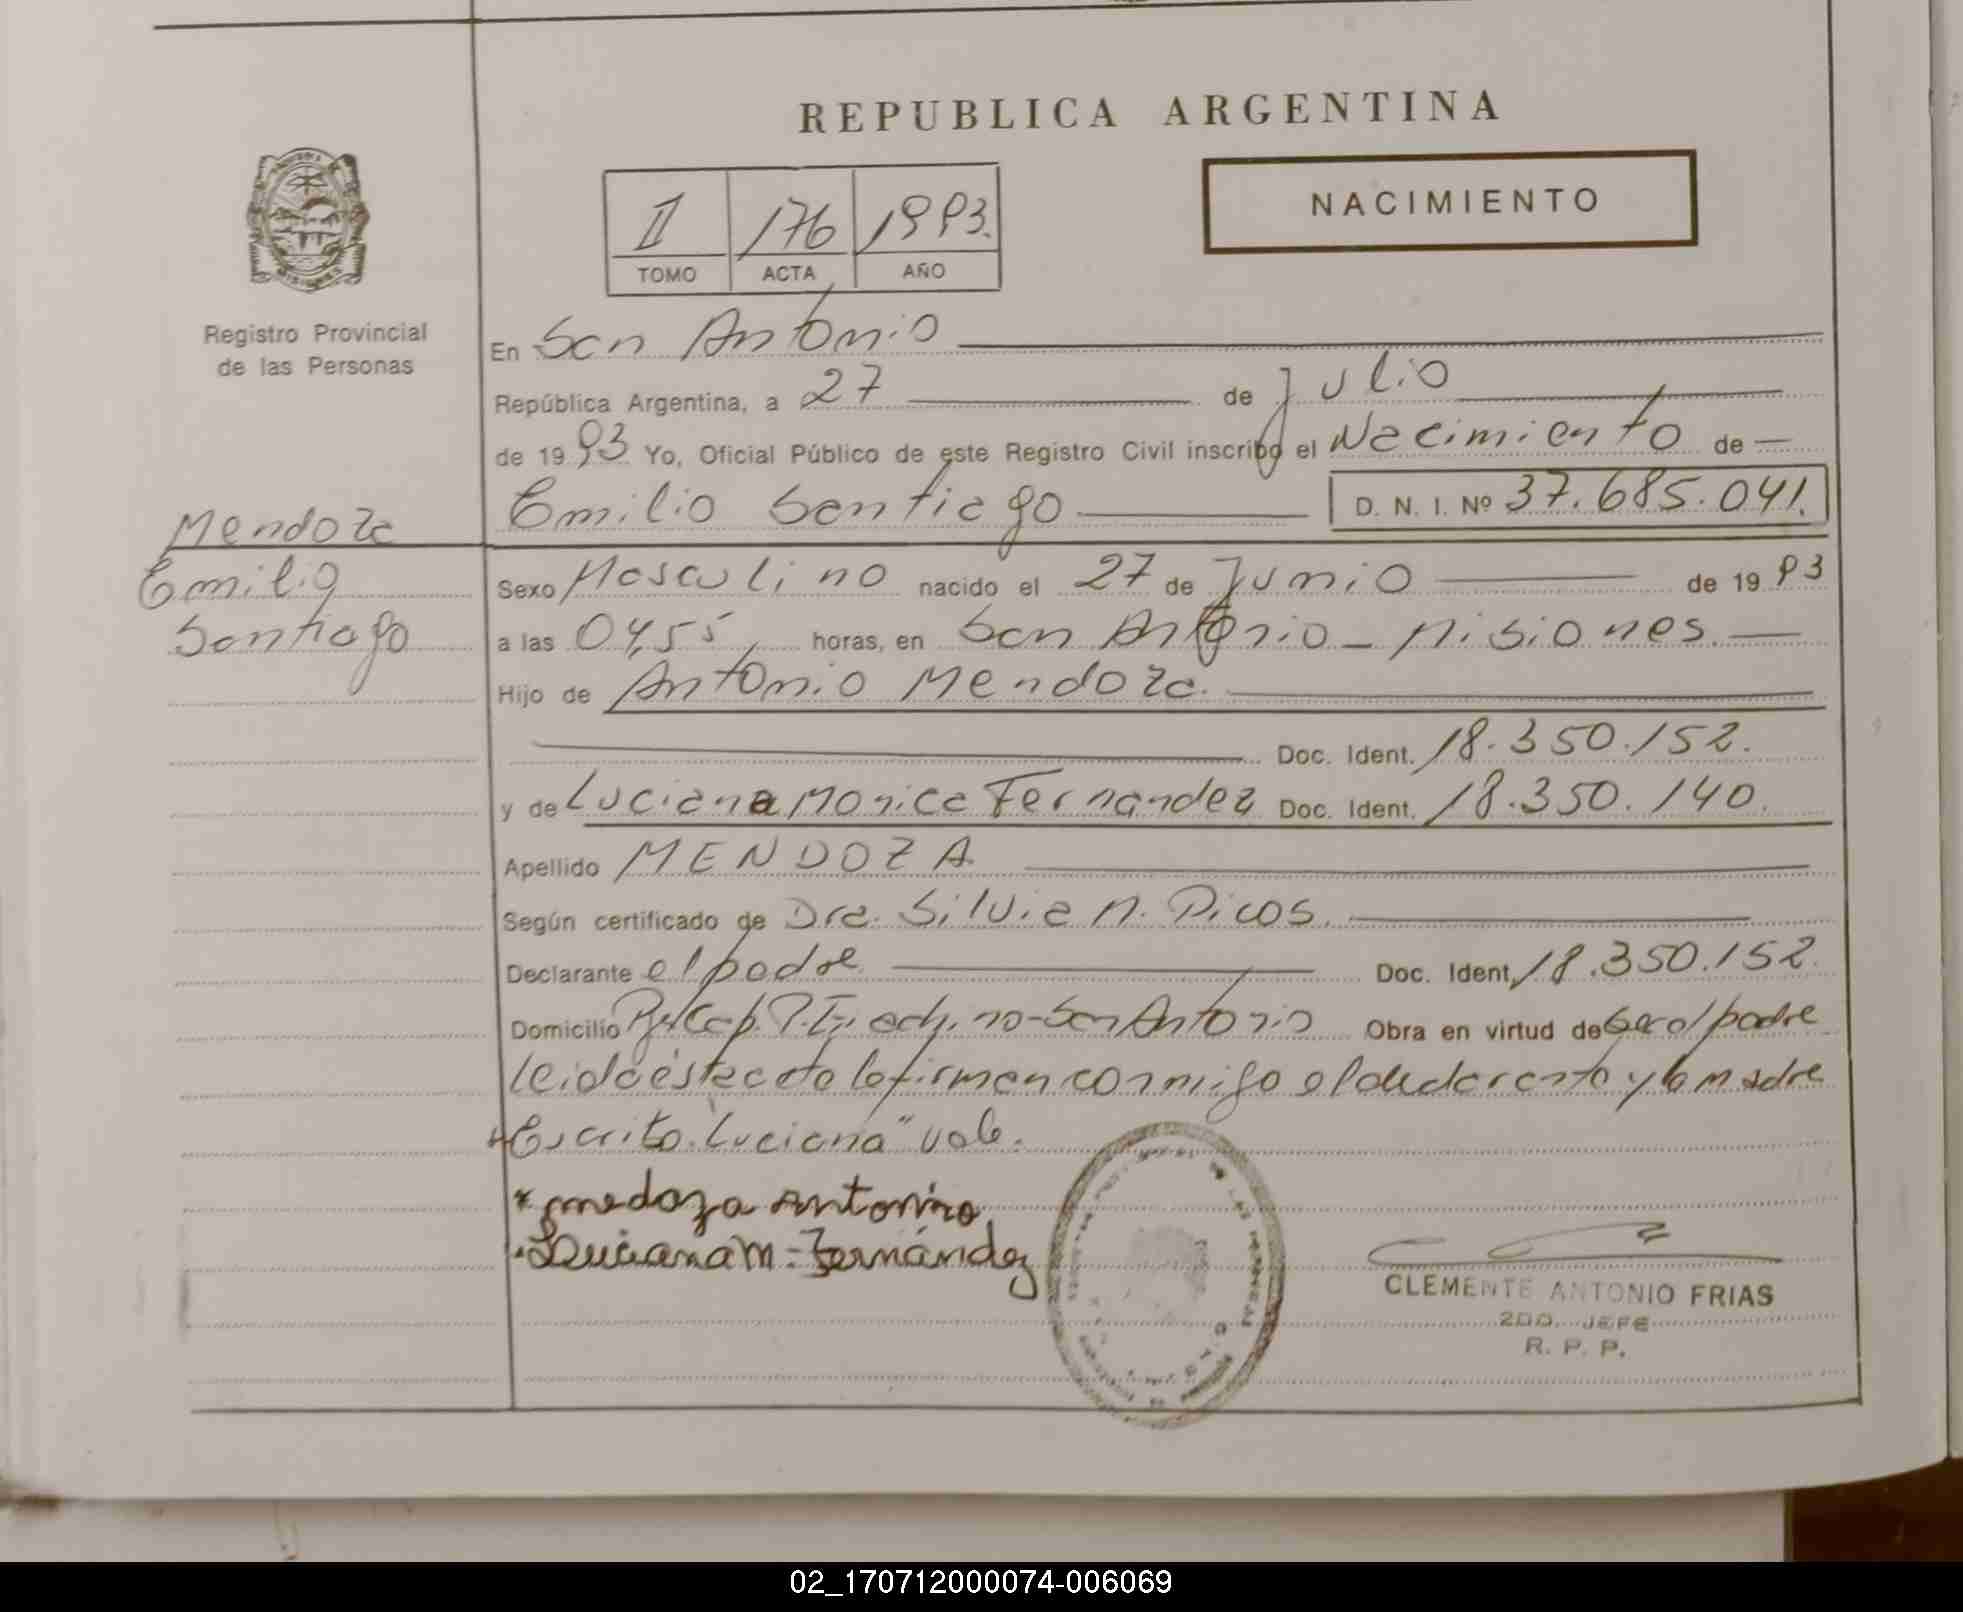 REPUBLICA ARGENTINA
NACIMIENTO
II 176 1993.
TOMO ACTA AÑO
Registro Provincial
de las Personas
En San Antonio
República Argentina, a 27 de Julio
de 1993 Yo, Oficial Público de este Registro Civil inscribo el Nacimiento de
Emilio Santiago D. N. I. Nº 37.685.041.
Mendoza
Emilio
Santiago
Sexo Masculino nacido el 27 de Junio de 1993
a las 04,55 horas, en San Antonio - Misiones.
Hijo de Antonio Mendoza.
Doc. Ident. 18.350.152.
y de Luciana Monica Fernandez Doc. Ident. 18.350.140.
Apellido MENDOZA
Según certificado de Dra. Silvia N. Picos.
Declarante el padre Doc. Ident. 18.350.152.
Domicilio San Antonio Obra en virtud de Ser el padre
leida ésta acta la firman conmigo el declarante y la madre
Escrito "Luciana" vale.
* mendoza Antonino
Luciana M. Fernández
CLEMENTE ANTONIO FRIAS
2DO. JEFE
R. P. P.
02_170712000074-006069